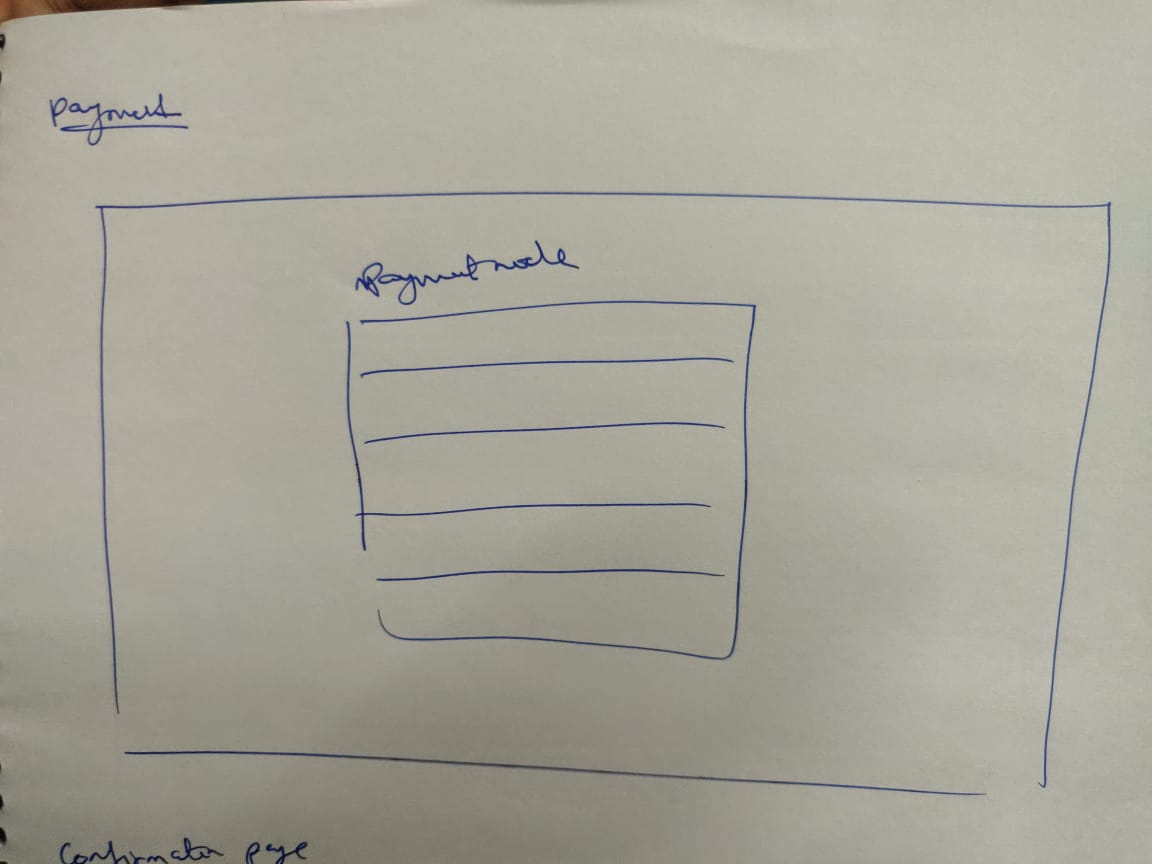 Payment
Payment mode
Confirmation page